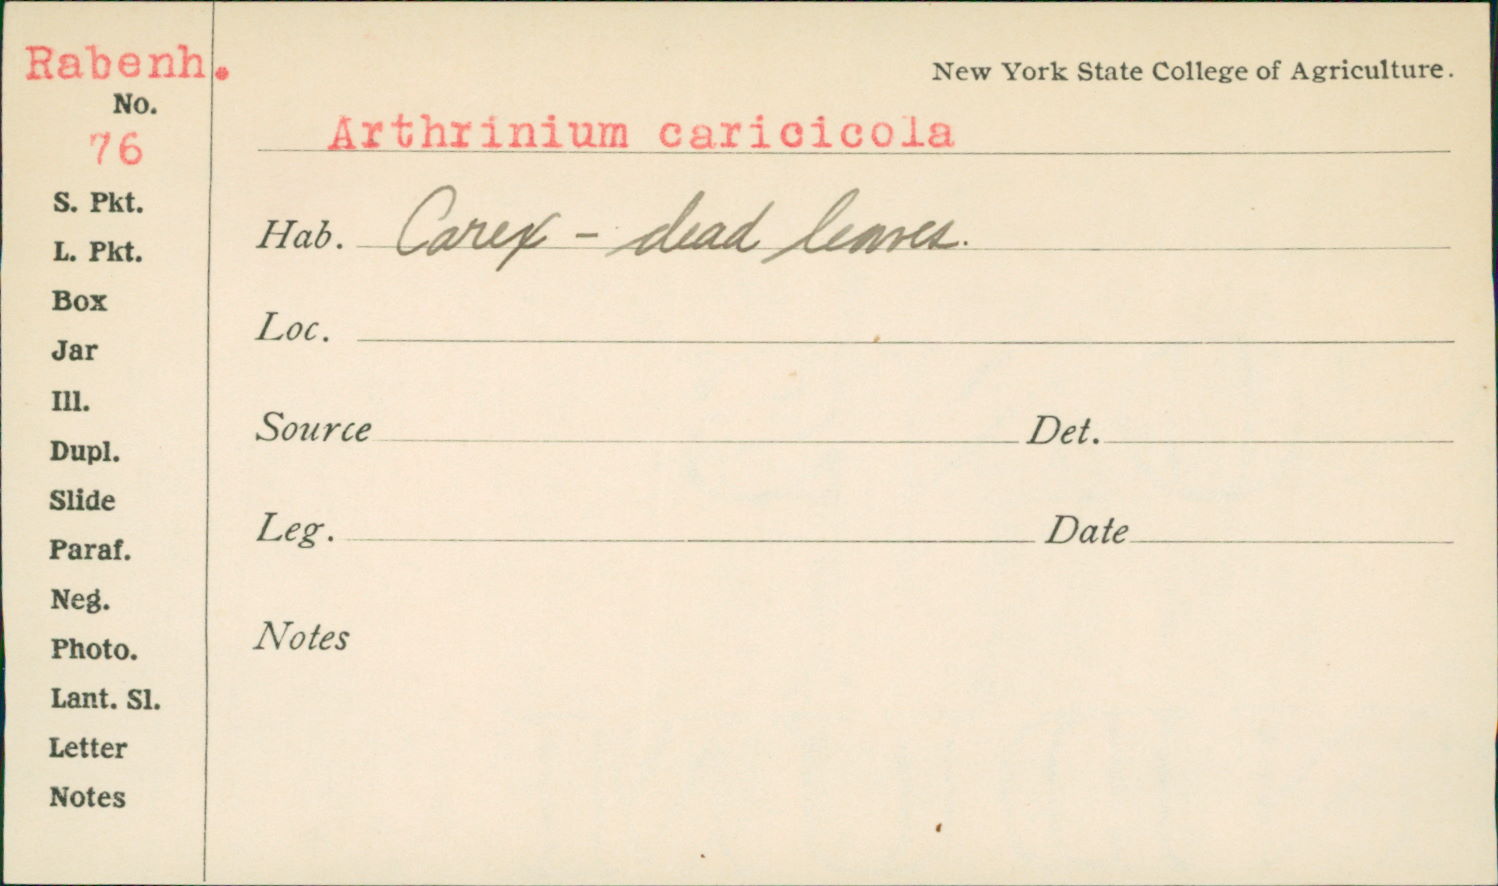 Rabenh.
No.
76
S. Pkt.
L. Pkt.
Box
Jar
Ill.
Dupl.
Slide
Paraf.
Neg.
Photo.
Lant. Sl.
Letter
Notes
New York State College of Agriculture.
Arthrinium caricicola
Hab. Carex - dead leaves.
Loc.
Source Det.
Leg. Date
Notes